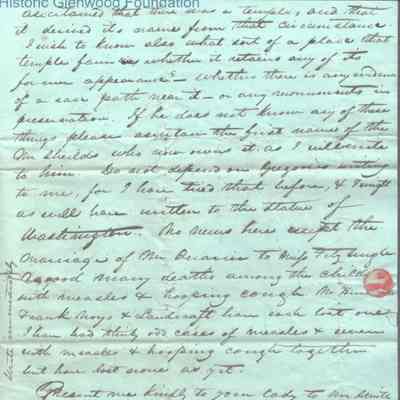 Historic Glenwood Foundation
ascertained that there was a temple, and that
it derived its name from that circumstance
I wish to know also what sort of a place that
temple farm is whether it retains any of its
former appearance - whether there is any evidence
of a race path near it - or any monuments in
preservation. If he does not know any of these
things please ascertain the first name of the
Mr Shields who now owns it as I will write
to him. Do not depend on Gregories writing
to me, for I have tried that before, & I might
as well have written to the statue of
Washington. No news here except the
marriage of Mr to Miss Fitzhugh
A good many deaths among the children
with measles & hooping cough Mr
Frank Noys & Landcraft have each lost one
I have had thirty odd cases of measles & seven
with measles & hooping cough together
but have lost none as yet
Present me kindly to your lady to Mr
write immediately